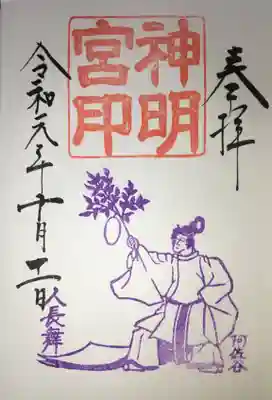 奉拝
神明
宮印
令和元年十月十一日
人長舞
阿佐谷